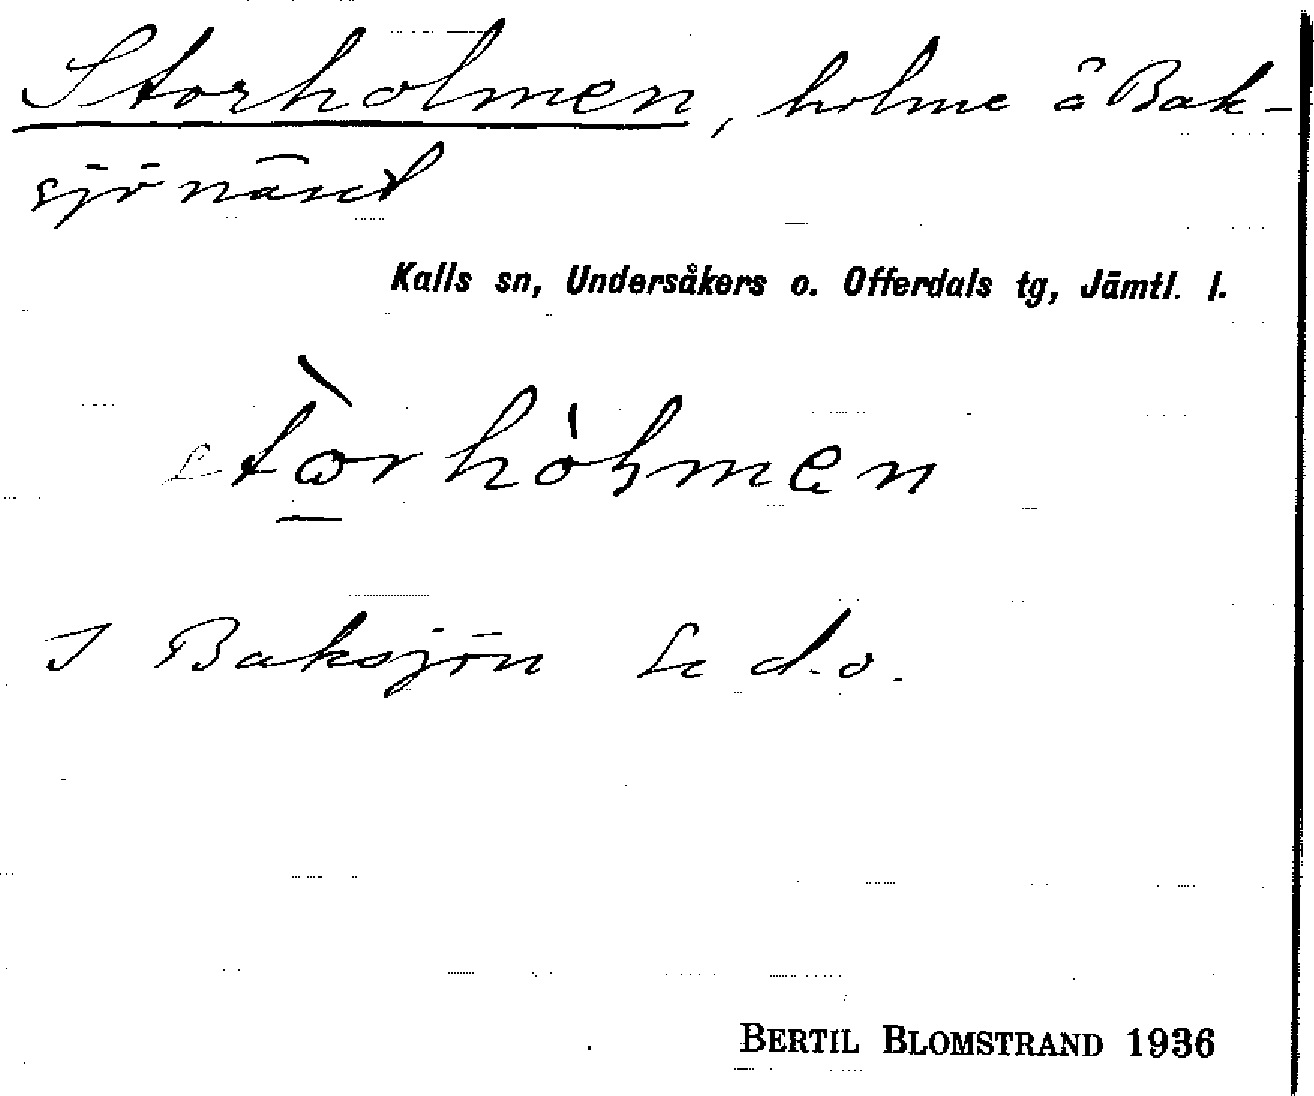 Storholmen, holme å Bak-
sjönäset
Kalls sn, Undersåkers o. Offerdals tg, Jämtl. l.
stòrhólmen
I Baksjön Se d.o.
BERTIL BLOMSTRAND 1936